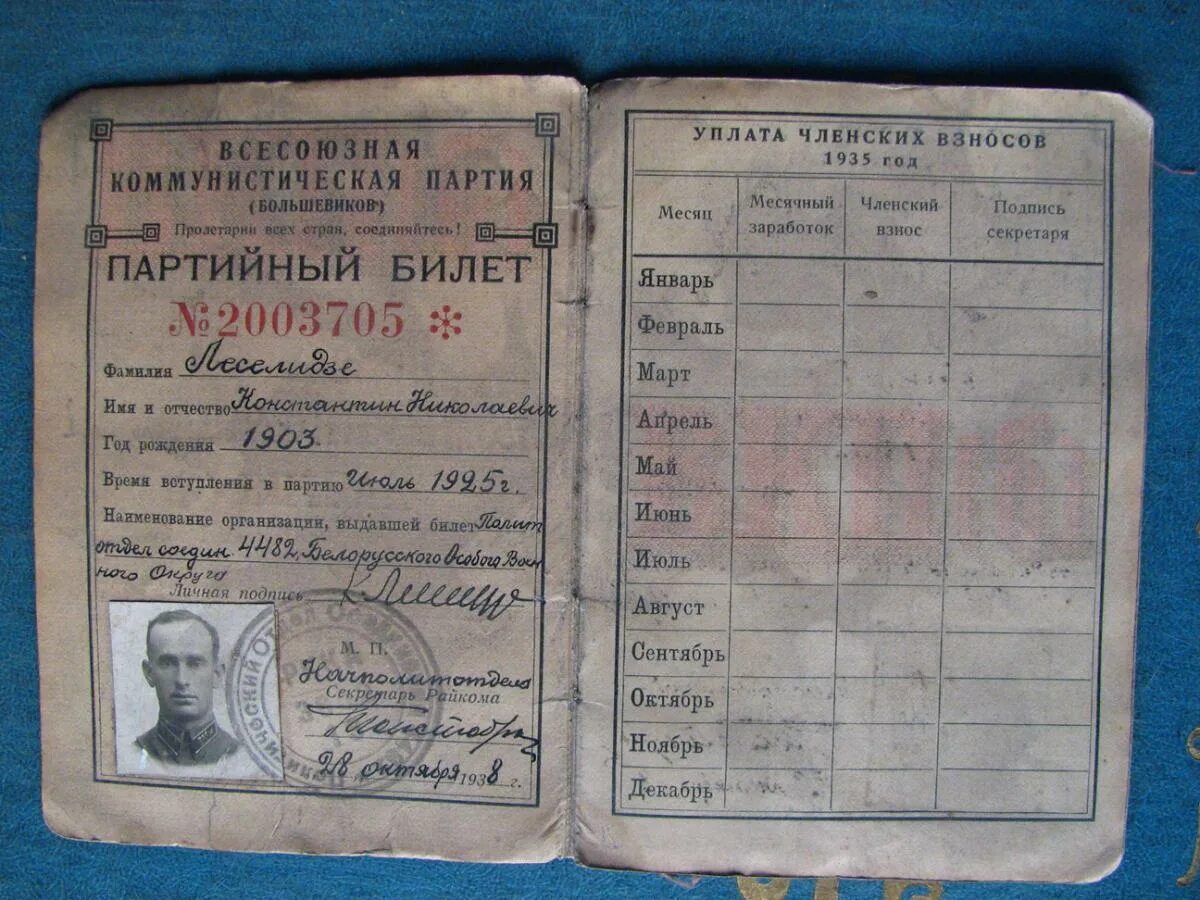 ВСЕСОЮЗНАЯ
КОММУНИСТИЧЕСКАЯ ПАРТИЯ
(БОЛЬШЕВИКОВ)
Пролетарии всех стран, соединяйтесь!
ПАРТИЙНЫЙ БИЛЕТ
№ 2003705 *
Фамилия Леселидзе
Имя и отчество Константин Николаевич
Год рождения 1903
Время вступления в партию Июль 1925 г.
Наименование организации, выдавшей билет Полит
отдел соедин. 4482, Белорусского Особого Воен
ного Округа
Личная подпись
М. П.
Начполитотдела
Секретарь Райкома
28 октября 1938 г.
УПЛАТА ЧЛЕНСКИХ ВЗНОСОВ
1935 год
Месяц Месячный заработок Членский взнос Подпись секретаря
Январь
Февраль
Март
Апрель
Май
Июнь
Июль
Август
Сентябрь
Октябрь
Ноябрь
Декабрь